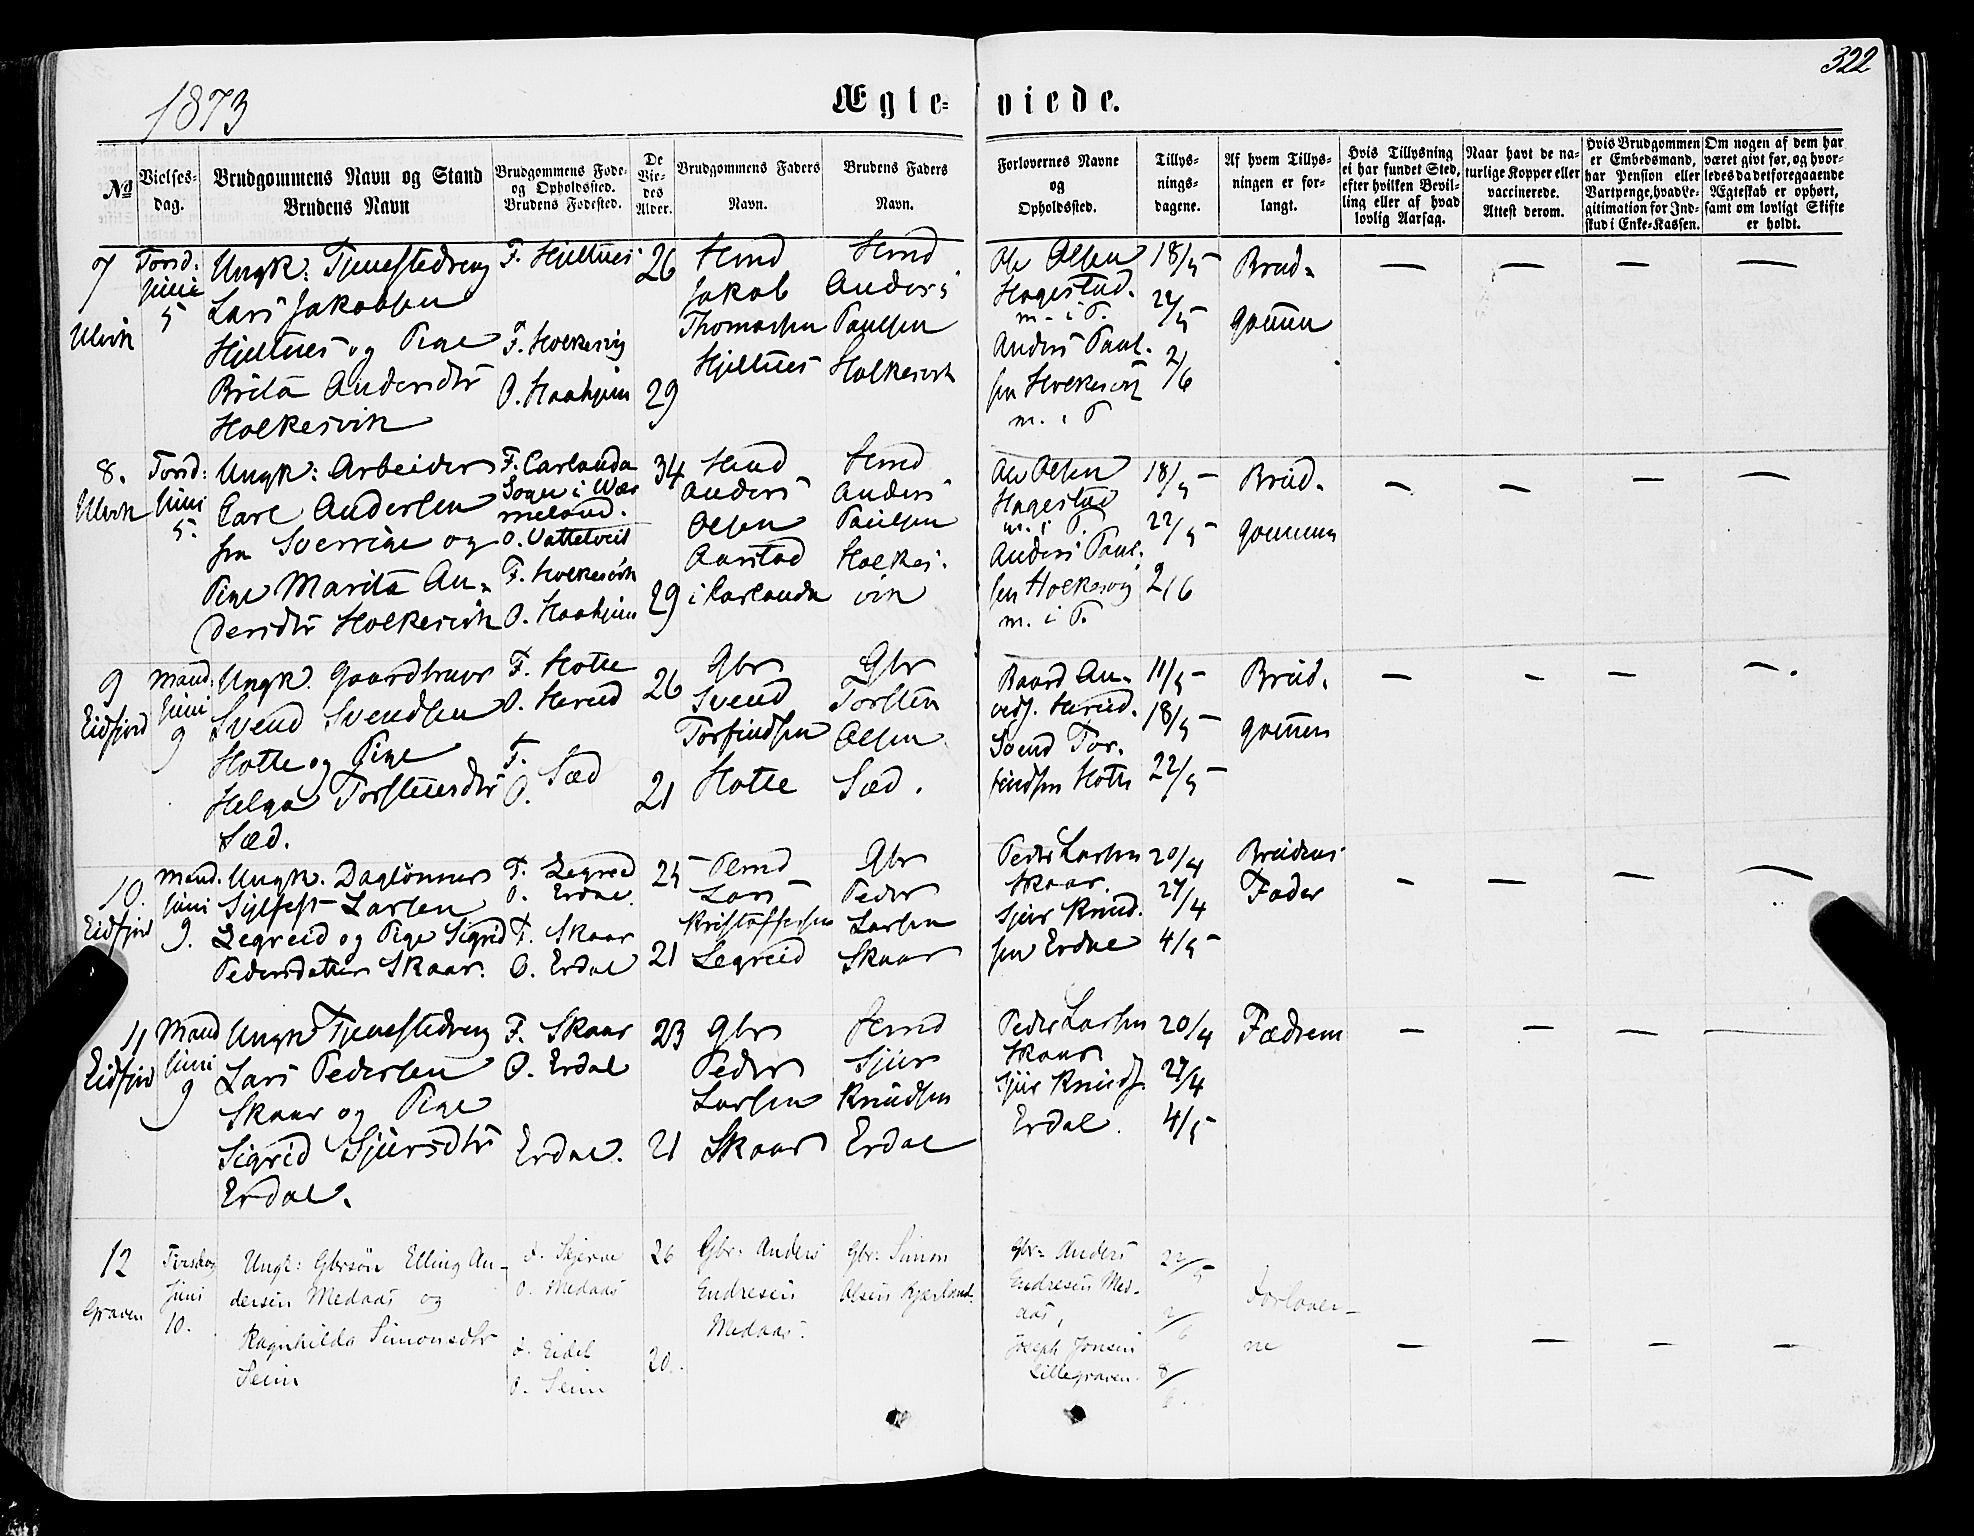 322
1873
Ægte= viede.
No
Vielses-
dag.
Brudgommens Navn og Stand
Brudens Navn
Brudgommens Føde-
og Opholdssted.
Brudens Fødested.
De
Vie-
des
Alder.
Brudgommens Faders
Navn.
Brudens Faders
Navn.
Forlovernes Navne
og
Opholdssted.
Tillys-
nings-
dagene.
Af hvem Tillys-
ningen er for-
langt.
Hvis Tillysning
ei har fundet Sted,
efter hvilken Bevil-
ling eller af hvad
lovlig Aarsag.
Naar havt de na-
turlige Kopper eller
vaccinerede.
Attest derom.
Hvis Brudgommen
er Embedsmand,
har Pension eller
Vartpenge, hvad Le-
gitimation for Ind-
skud i Enke-Kassen.
Om nogen af dem har
været givt før, og hvor-
ledes da det foregaaende
Ægteskab er ophørt,
samt om lovligt Skifte
er holdt.
7
Ulvik
Torsd:
Juni
5
Ungk: Tjenestedreng
Lars Jakobsen
Hjeltnes og Pige
Brita Andersdtr
Holkesvik
F. Hjeltnes
F. Holkesvig
O. Haaheim
26
29
Hmd
Jakob
Thomassen
Hjeltnes
Hmd
Anders
Paulsen
Holkesvik
Ole Olsen
Hagestad.
m. i T.
Anders Paul-
sen Holkesvig
m. i T
18/5
22/5
2/6
Brud-
gommen
8.
Ulvik
Torsd:
Juni
5.
Ungk: Arbeider
Carl Andersen
fra Sverrige og
Pige Marita An-
dersdtr Holkesvik
F. Carlanda
Sogn i Wær
meland.
O. Vattetveit
F. Holkesvik
O. Haaheim
34
29
Hmd
Anders
Olsen
Aarstad
i Carlanda
Hmd
Anders
Paulsen
Holkes-
vik
Ole Olsen
Hagestad
m. i T.
Anders Paul-
sen Holkesvig
m. i T.
18/5
22/5
2/6
Brud-
gommen
9
Eidfjord
Mand:
Juni
9
Ungk. Gaardbruger
Svend Svendsen
Hotle og Pige
Helga Torstensdtr
Sæd.
F. Hotle
O. Hereid
F.
O. Sæd
26
21
Gbr
Svend
Torfindsen
Hotle
Gbr
Torsten
Olsen
Sæd.
Baard An-
veds. Hereid.
Svend Tor-
findsen Hotle
11/5
18/5
22/5
Brud-
gommen
10.
Eidfjord
Mand.
Juni
9.
Ungk. Daglønner
Sjlfest Larsen
Legreid og Pige Sigrid
Pedersdatter Skaar.
F. Legreid
O. Erdal
F. Skaar
O. Erdal
25
21
Plmd
Lars
Kristoffersen
Legreid
Gbr
Peder
Larsen
Skaar
Peder Larsen
Skaar.
Sjur Knud-
sen Erdal
20/4
27/4
4/5
Brudens
Fader
11
Eidfjord
Mand
Juni
9
Ungk Tjenestedreng
Lars Pedersen
Skaar og Pige
Sigrid Sjursdtr
Erdal.
F. Skaar
O. Erdal
Erdal.
23
21
Gbr
Peder
Larsen
Skaar
Hmd
Sjur
Knudsen
Erdal
Peder Larsen
Skaar
Sjur Knuds.
Erdal.
20/4
27/4
4/5
Fædrem
12
Graven
Tirsdag
Juni
10.
Ungk: Gbrsøn Elling An-
dersen Medaas og
Ragnhilda Simonsdtr
Seim
F. Skjerve
O. Medaas
F. Eidel
O. Seim
26
20.
Gbr: Anders
Endresen
Medaas.
Gbr: Simon
Olsen Kjærland.
Gbr= Anders
Endresen Med-
aas,
Joseph Jonsen
Lillegraven.
22/5
2/6
8/6.
Forlover-
ne